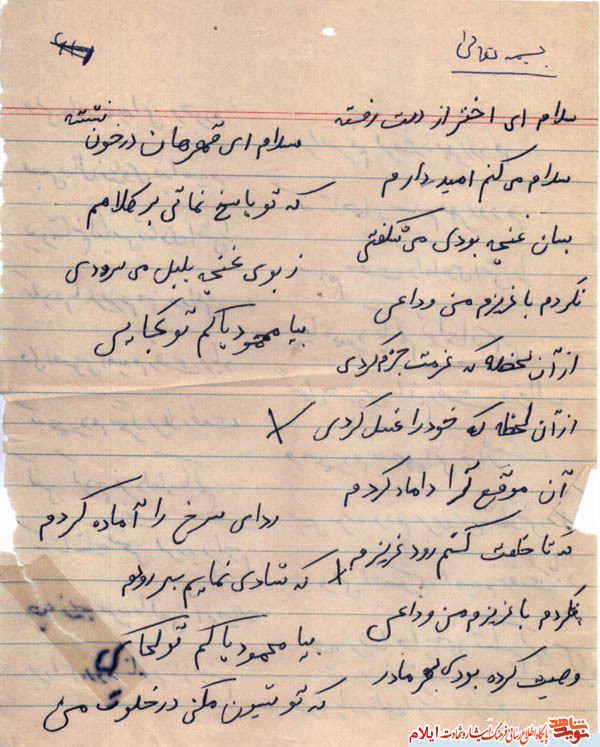 بسمه تعالی
سلام ای اختر از دست رفته
سلام ای قهرمان در خون نشسته
سلام می کنم امید دارم
که تو پاسخ نمائی بر کلامم
بسان غنچه بودی می شکفتی
ز بوی غنچه بلبل می سرودی
نکردم با عزیزم من وداعی
بیا محمود پاکم تو کجایی
از آن لحظه که عزمت جزم کردی
از آن لحظه که خود را غسل کردی
آن موقع ترا داماد کردم
ردای سرخ را آماده کردم
که تا خلعت کنم رود عزیزم
که شادی نمایم بر رودم
نکردم با عزیزم من وداعی
بیا محمود پاکم تو کجای
وصیت کرده بودی بهر مادر
که تو شیون مکن در خلوت من
نوید شاهد
پایگاه اطلاع رسانی فرهنگ ایثار و شهادت ایلام